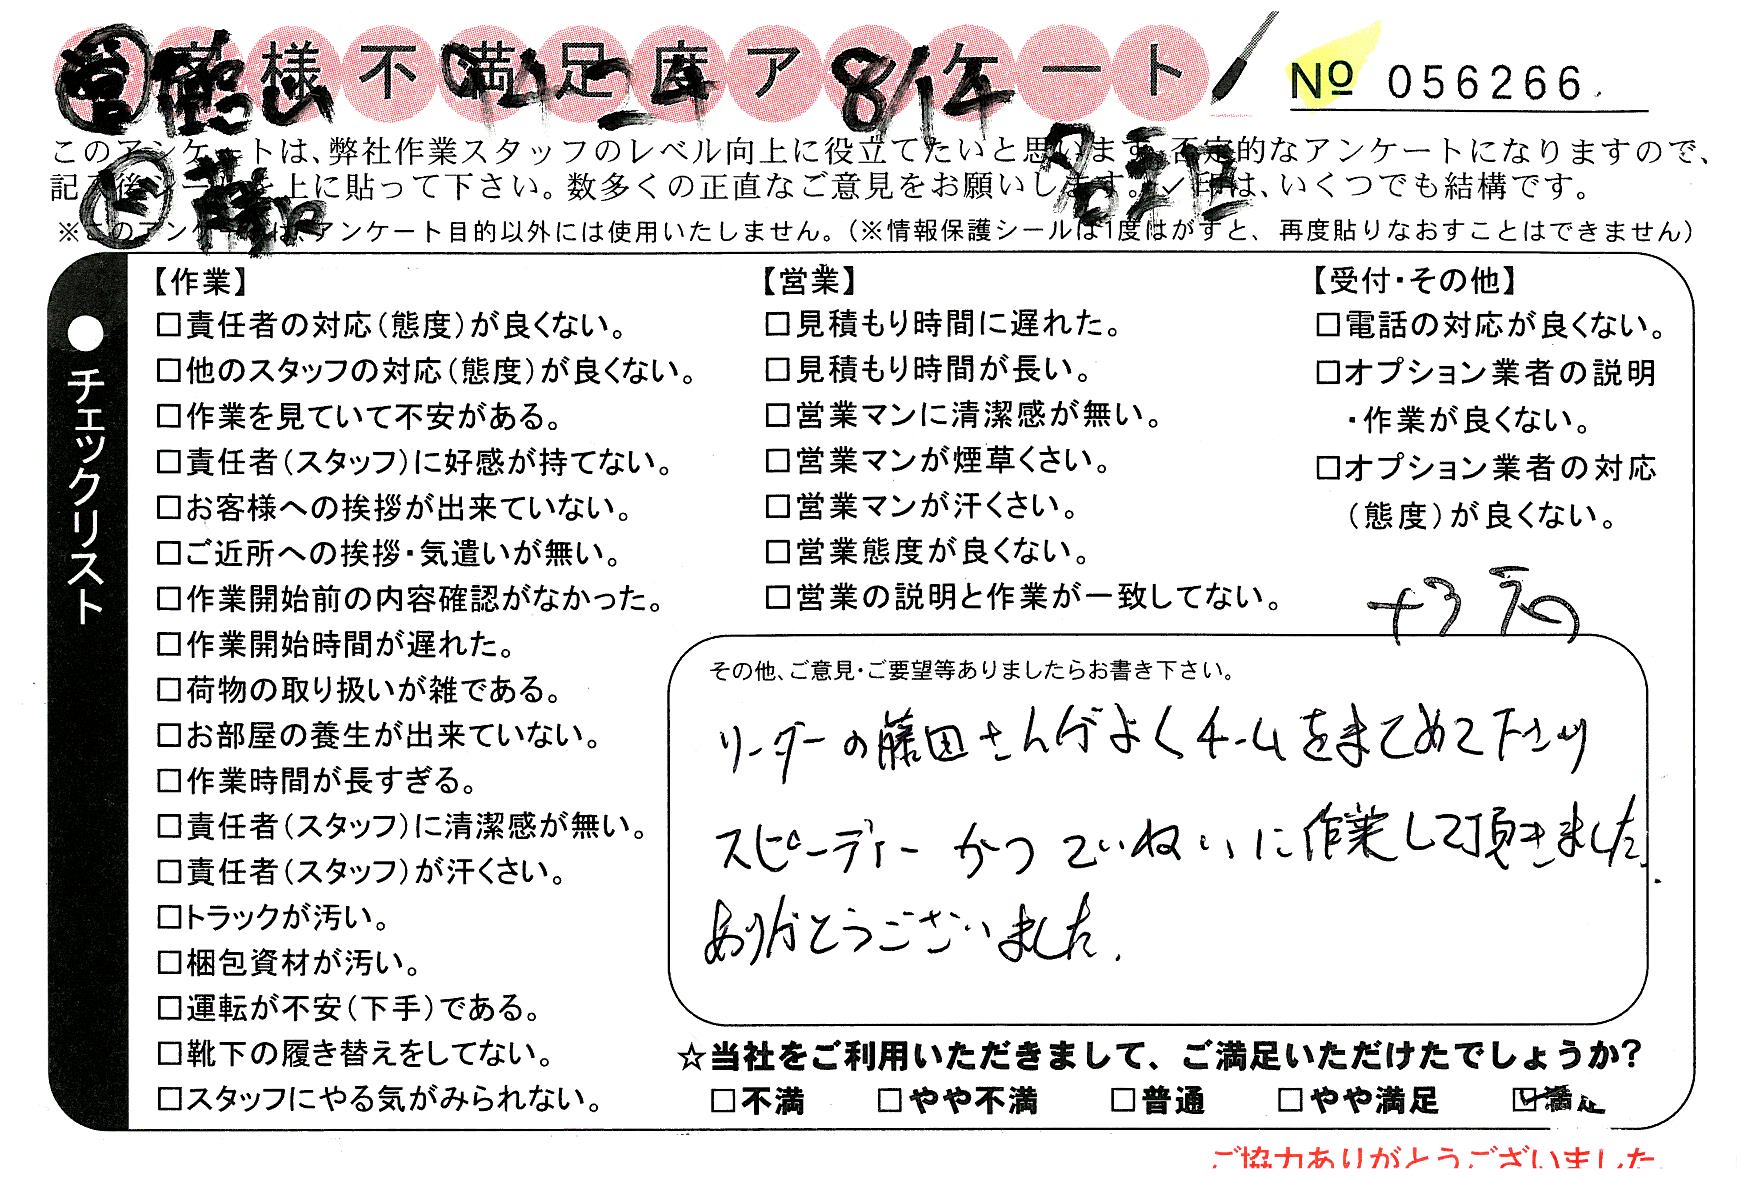 お客様不満足度アンケート
8/14
№ 056266
このアンケートは、弊社作業スタッフのレベル向上に役立てたいと思います。否定的なアンケートになりますので、
記入後シールを上に貼って下さい。数多くの正直なご意見をお願いします。✓印は、いくつでも結構です。
※このアンケートは、アンケート目的以外には使用いたしません。（※情報保護シールは1度はがすと、再度貼りなおすことはできません）
●チェックリスト
【作業】
□責任者の対応（態度）が良くない。
□他のスタッフの対応（態度）が良くない。
□作業を見ていて不安がある。
□責任者（スタッフ）に好感が持てない。
□お客様への挨拶が出来ていない。
□ご近所への挨拶・気遣いが無い。
□作業開始前の内容確認がなかった。
□作業開始時間が遅れた。
□荷物の取り扱いが雑である。
□お部屋の養生が出来ていない。
□作業時間が長すぎる。
□責任者（スタッフ）に清潔感が無い。
□責任者（スタッフ）が汗くさい。
□トラックが汚い。
□梱包資材が汚い。
□運転が不安（下手）である。
□靴下の履き替えをしてない。
□スタッフにやる気がみられない。
【営業】
□見積もり時間に遅れた。
□見積もり時間が長い。
□営業マンに清潔感が無い。
□営業マンが煙草くさい。
□営業マンが汗くさい。
□営業態度が良くない。
□営業の説明と作業が一致してない。
【受付・その他】
□電話の対応が良くない。
□オプション業者の説明
・作業が良くない。
□オプション業者の対応
（態度）が良くない。
その他、ご意見・ご要望等ありましたらお書き下さい。
リーダーの藤田さんがよくチームをまとめて下さり
スピーディーかつていねいに作業して頂きました。
ありがとうございました。
☆当社をご利用いただきまして、ご満足いただけたでしょうか?
□不満 □やや不満 □普通 □やや満足 ☑満足
ご協力ありがとうございました